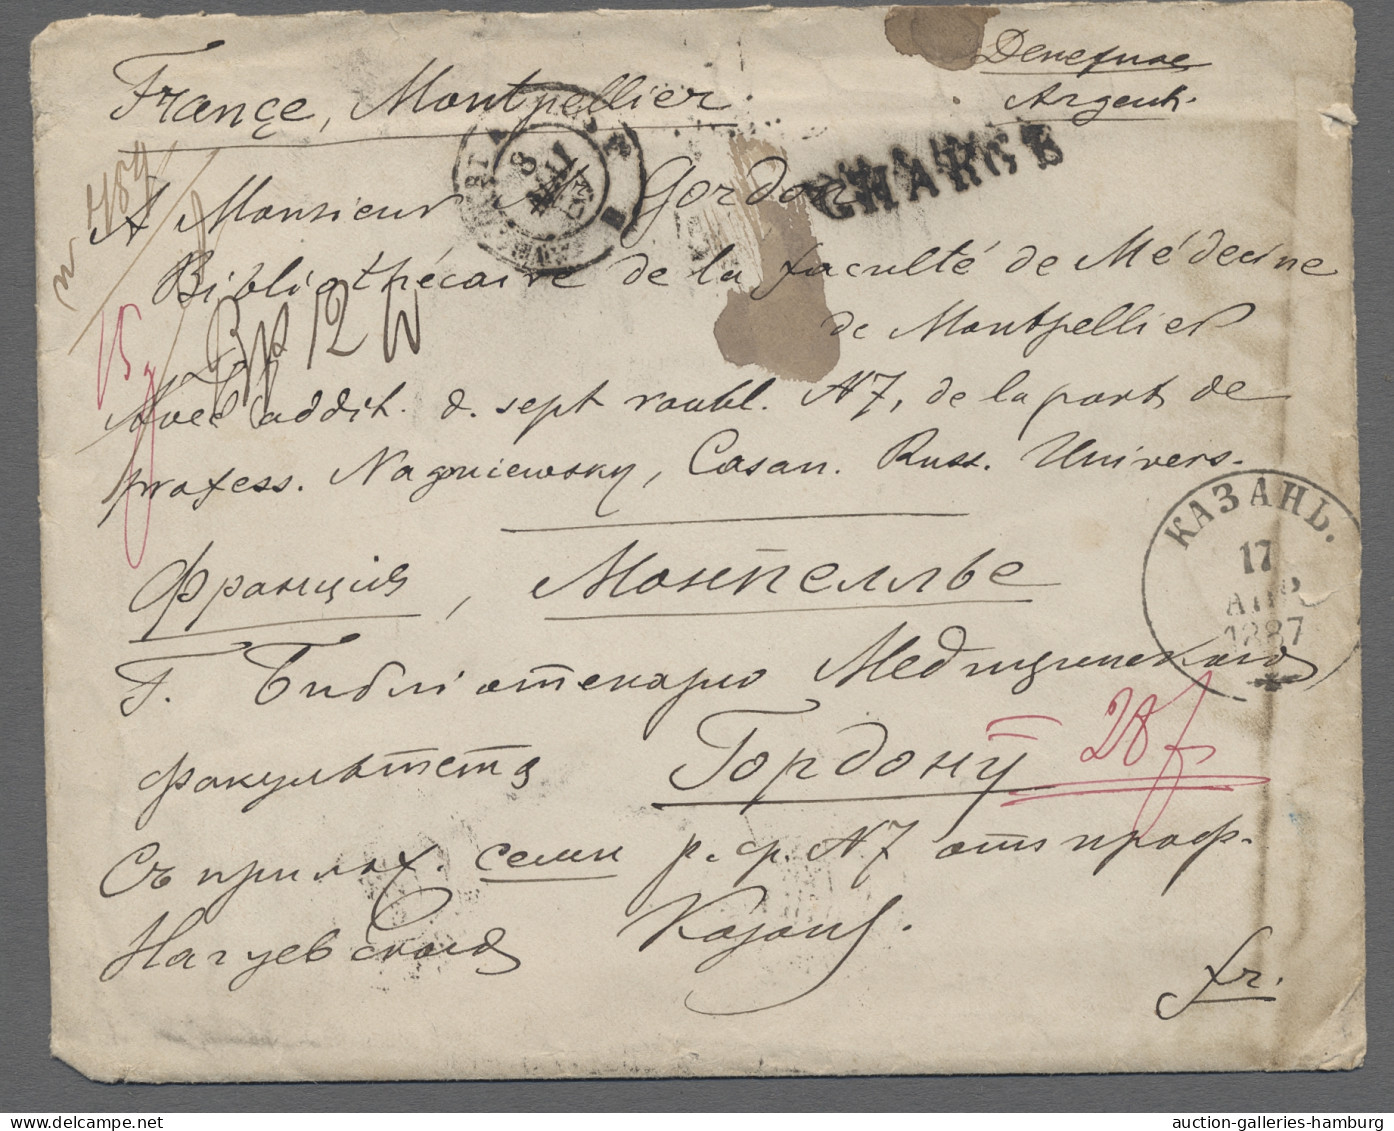 Денежное
Argent.
France, Montpellier.
CHARGÉ
A Monsieur Gordon
Bibliothécaire de la faculté de Médecine
de Montpellier
Avec addit. d. sept roubl. N7, de la part de
profess. Naguiewsky, Casan. Russ. Univers.
КАЗАНЬ.
17
АПР
1887
Франція, Монпеллье
Г. Библіотекарю Медицинскаго
факультета Гордону
28 f
Съ прилож. семи р. ср. N7 отъ проф.
Нагуевскаго Казань.
fr.
auction-galleries-hamburg.com